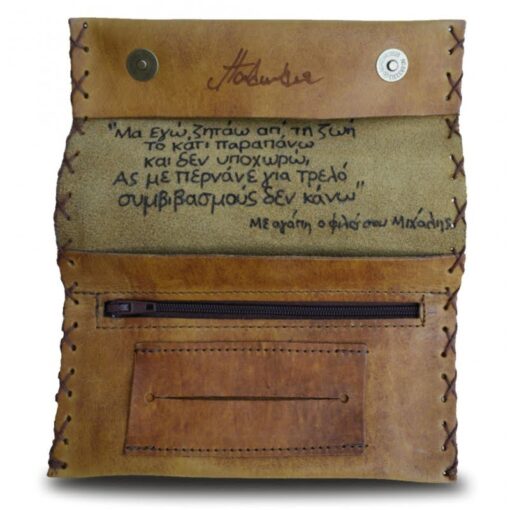 "Μα εγώ, ζητάω απ' τη ζωή
το κάτι παραπάνω
και δεν υποχωρώ,
Ας με περνάνε για τρελό
συμβιβασμούς δεν κάνω"
Με αγάπη ο φίλος σου Μιχάλης